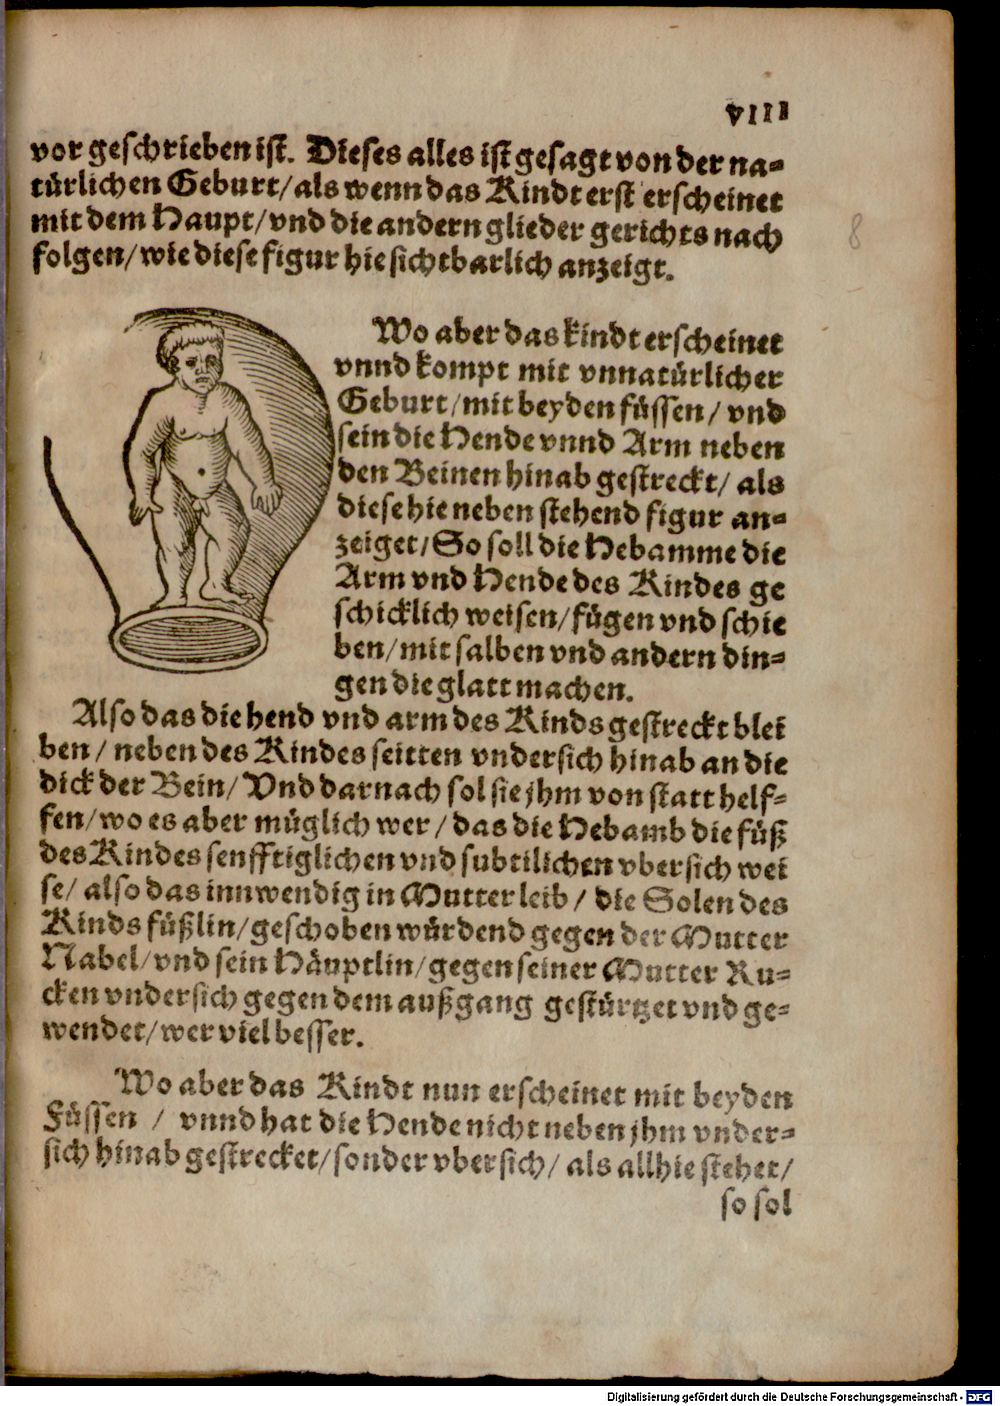 VIII
vor geschrieben ist. Dieses alles ist gesagt von der na-
türlichen Geburt/ als wenn das Kindt erst erscheinet
mit dem Haupt/ vnd die andern glieder gerichts nach
folgen/ wie diese figur hie sichtbarlich anzeigt.
8
Wo aber das kindt erscheinet
vnnd kompt mit vnnatürlicher
Geburt/ mit beyden füssen/ vnd
sein die Hende vnnd Arm neben
den Beinen hinab gestreckt/ als
diese hie neben stehend figur an-
zeiget/ So soll die Hebamme die
Arm vnd Hende des Kindes ge
schicklich weisen/ fügen vnd schie
ben/ mit salben vnd andern din-
gen die glatt machen.
Also das die hend vnd arm des Kinds gestreckt blei
ben/ neben des Kindes seitten vndersich hinab an die
dick der Bein/ Vnd darnach sol sie jhm von statt helf-
fen/ wo es aber müglich wer/ das die Hebamb die füß
des Kindes senfftiglichen vnd subtilichen vbersich wei
se/ also das innwendig in Mutter leib/ die Solen des
Kinds füßlin/ geschoben würdend gegen der Mutter
Nabel/ vnd sein Häuptlin/ gegen seiner Mutter Ru-
cken vndersich gegen dem außgang gestürtzet vnd ge-
wendet/ wer viel besser.
Wo aber das Kindt nun erscheinet mit beyden
Füssen/ vnnd hat die Hende nicht neben jhm vnder-
sich hinab gestrecket/ sonder vbersich/ als allhie stehet/
so sol
Digitalisierung gefördert durch die Deutsche Forschungsgemeinschaft - DFG